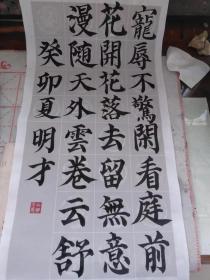 寵辱不驚閑看庭前
花開花落去留無意
漫随天外雲卷云舒
癸卯夏明才